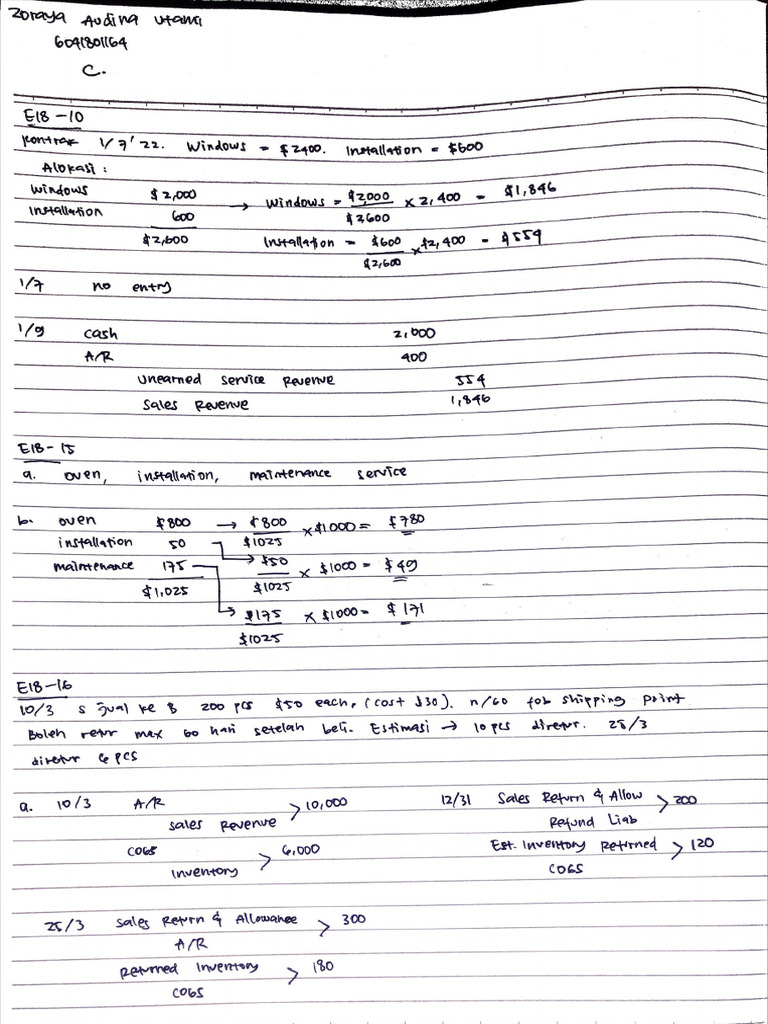 Zoraya Audina Utami
6041801164
C.
E18-10
Kontrak 1/7'22. Windows = $2400. Installation = $600
Alokasi :
Windows $2,000 → Windows = $2,000 / $2600 × 2,400 = $1,846
Installation 600
$2,600 Installation = $600 / $2,600 × $2,400 = $554
1/7 no entry
1/9 cash 2,000
A/R 400
Unearned Service Revenue 554
Sales Revenue 1,846
E18-15
a. oven, installation, maintenance service
b. oven $800 → $800 / $1025 × $1000 = $780
installation 50 → $50 / $1025 × $1000 = $49
maintenance 175 → $175 / $1025 × $1000 = $171
$1,025
E18-16
10/3 S jual ke B 200 pcs $50 each, (cost $30). n/60 fob shipping point
Boleh retur max 60 hari setelah beli. Estimasi → 10 pcs diretur. 25/3
diretur 6 pcs
a. 10/3 A/R > 10,000 12/31 Sales Return & Allow > 200
Sales Revenue Refund Liab
COGS > 6,000 Est. Inventory Returned > 120
Inventory COGS
25/3 Sales Return & Allowance > 300
A/R
Returned Inventory > 180
COGS